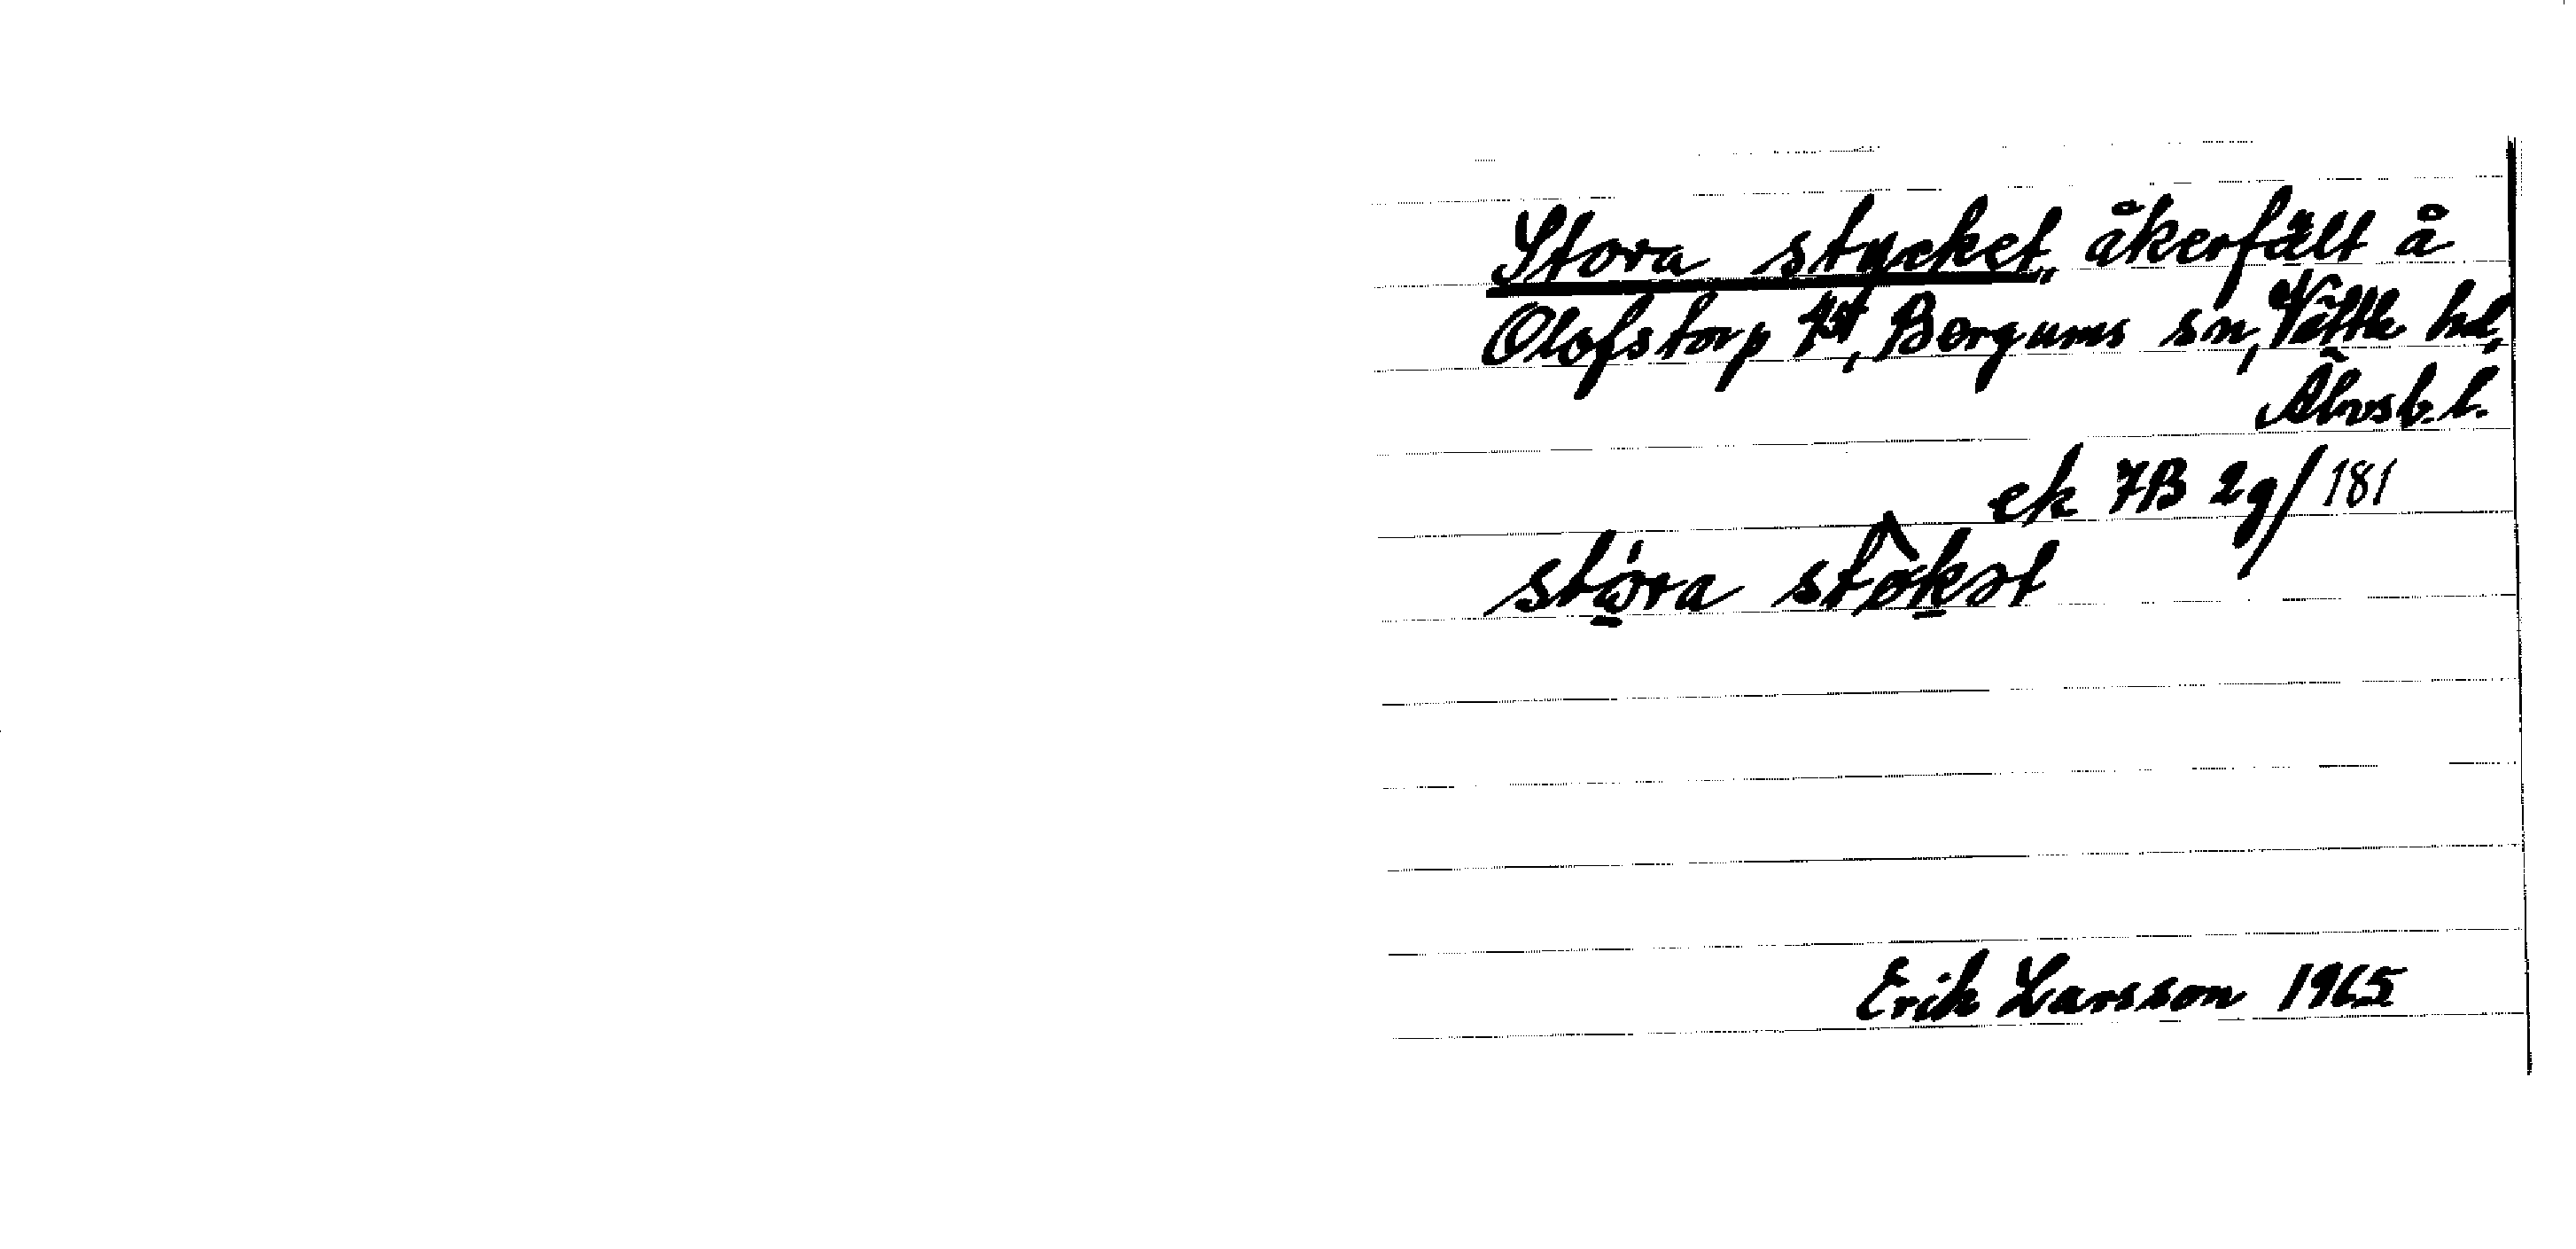 Stora stycket, åkerfält å
Olofstorp 4:1, Bergums sn, Vättle hd,
Älvsb. l.
ek 7B 2g/181
stóra stökət
Erik Larsson 1965